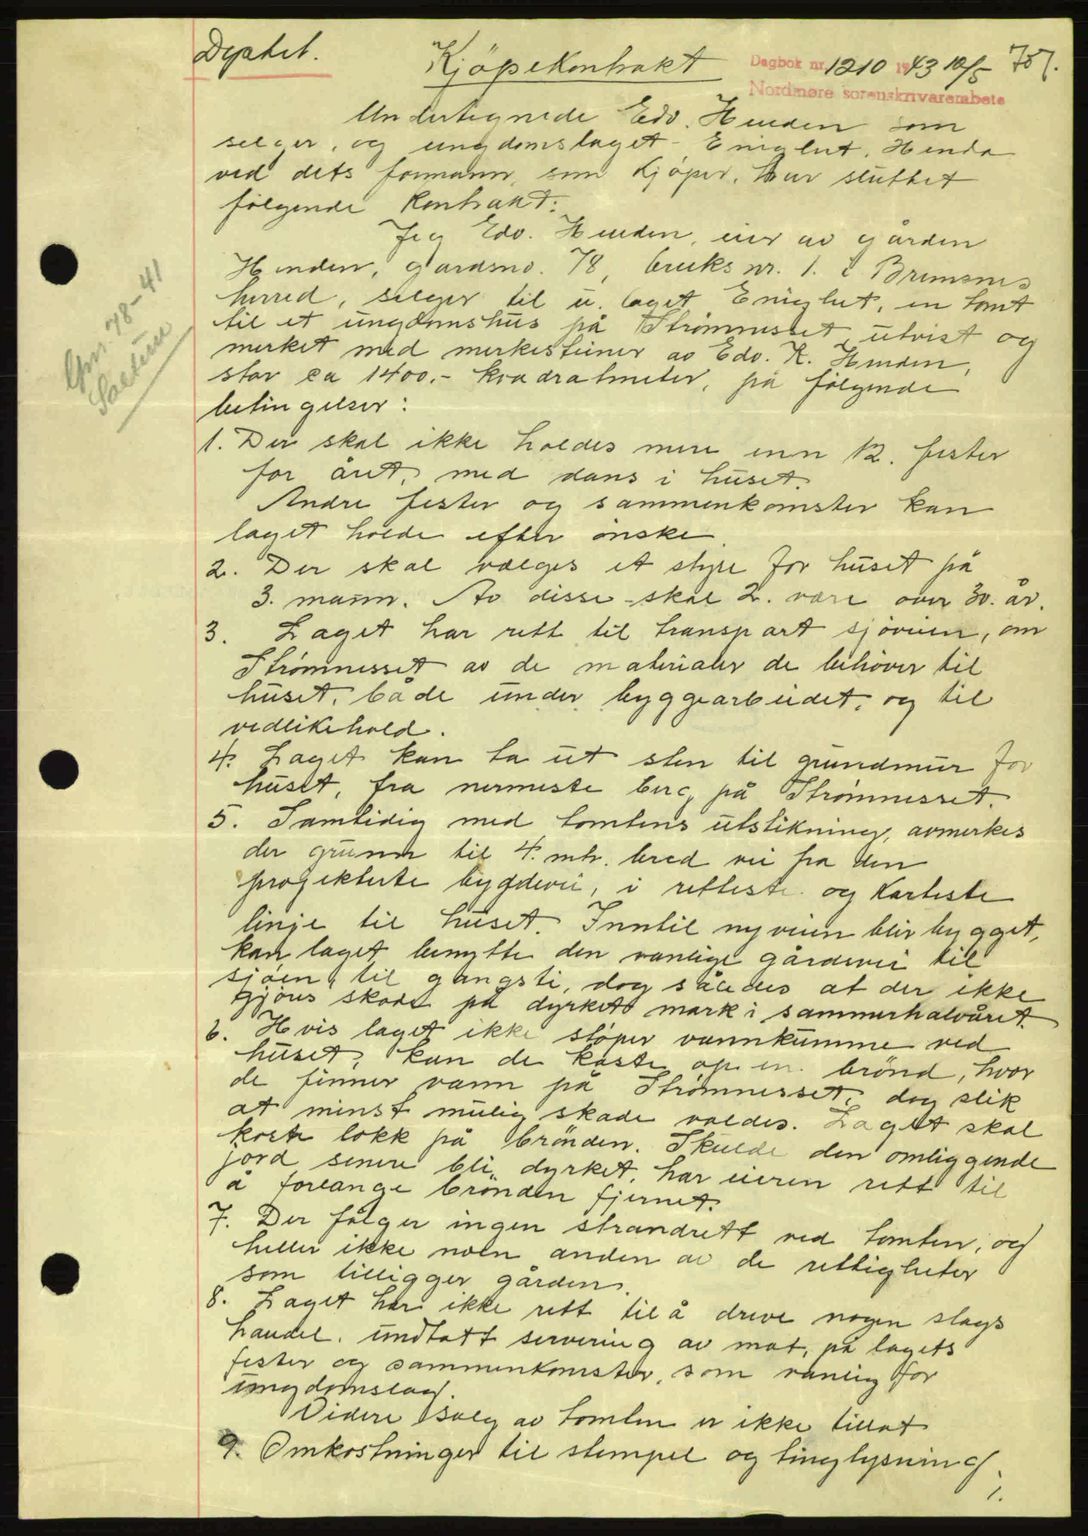 Dyptet.
Kjöpekontrakt
Dagbok nr. 1210 1943 10/5 757.
Nordmøre sorenskrivarembete
Undertegnede Edv. Henden som
selger, og ungdomslaget Enighet, Henda
ved dets formann, som kjöper, har sluttet
følgende kontrakt:
Jeg Edv. Henden, eier av gården
Henden, gardsno. 78, bruks nr. 1. i Bremsnes
herred, selger til u. laget Enighet, en tomt
til et ungdomshus på Strömnesset utvist og
merket med merkesteiner av Edv. K. Henden,
stor ca 1400.- kvadratmeter, på følgende
betingelser:
Gnr. 78-41
Soltun
1. Der skal ikke holdes mere enn 12. fester
for året, med dans i huset.
Andre fester og sammenkomster kan
laget holde efter önske
2. Der skal velges et styre for huset på
3. mann. Av disse skal 2. være over 30. år.
3. Laget har rett til transport sjöveien, om
Strömnesset av de materialer de behöver til
huset, både under byggearbeidet, og til
vedlikehold.
4. Laget kan ta ut sten til grundmur for
huset, fra nermeste berg, på Strömnesset.
5. Samtidig med tomtens utstikning, avmerkes
der grunn til 4. mtr. bred vei fra den
projekterte bygdevei, i retteste og korteste
linje til huset. Inntil nyveien blir bygget,
kan laget benytte den vanlige gårdsvei til
sjöen til gangsti, dog således at der ikke
gjöres skade på dyrket mark i sommerhalvåret.
6. Hvis laget ikke stöper vannkumme ved
huset, kan de kaste op en brönd, hvor
de finner vann på Strömnesset, dog slik
at minst mulig skade voldes. Laget skal
koste lokk på brönden. Skulde den omliggende
jord senere bli dyrket, har eieren rett til
å forlange brönden fjernet.
7. Der følger ingen strandrett ved tomten, og
heller ikke noen anden av de rettigheter
som tilligger gården.
8. Laget har ikke rett til å dreve nogen slags
handel, undtatt servering av mat, på lagets
fester og sammenkomster, som vanlig for
ungdomslag.
Videre salg av tomten er ikke tillat
9. Omkostninger til stempel og tinglysning